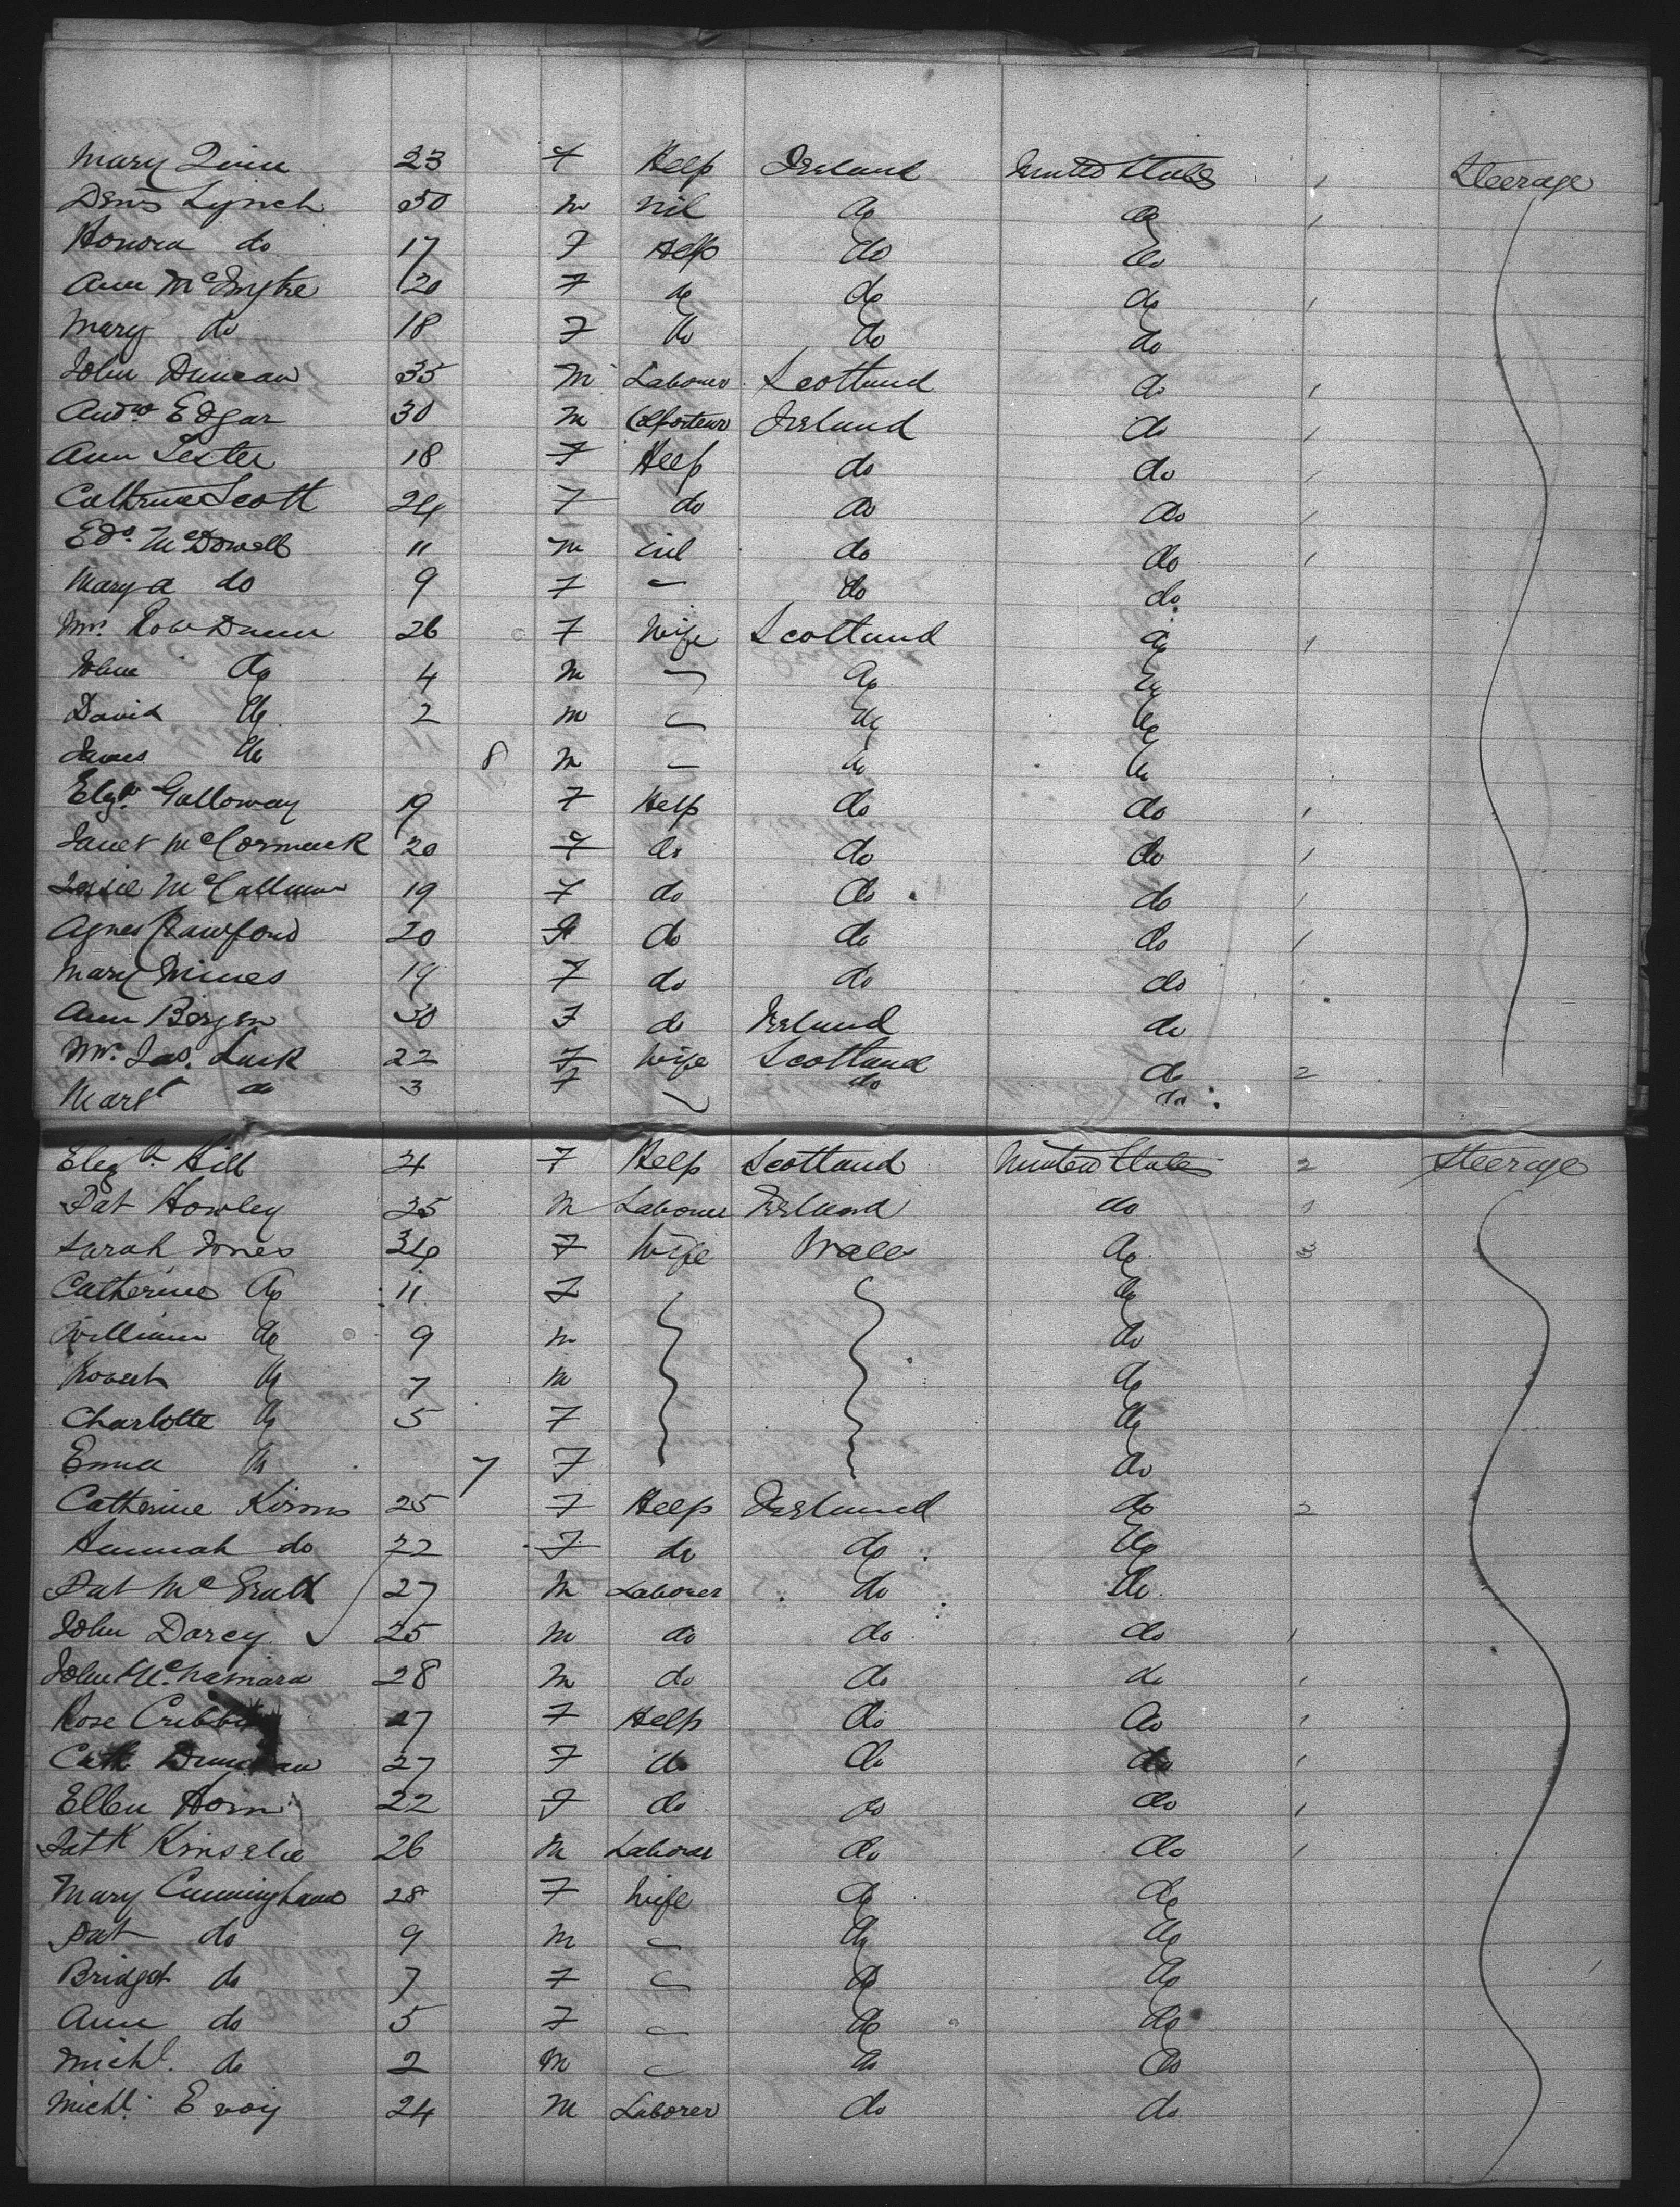 Mary Quin 23 F Help Ireland United States 1 Steerage
Denis Lynch 50 M nil do do 1
Honora do 17 F Help do do
Ann McIntyre 20 F do do do 1
Mary do 18 F do do do
John Duncan 35 M Laborer Scotland do 1
Andw Edgar 30 M Colporteur Ireland do 1
Ann Lester 18 F Help do do 1
Cathrine Scott 24 F do do do 1
Edd. McDowell 11 M nil do do 1
Mary A do 9 F — do do
Mrs. Robt Dunn 26 F Wife Scotland do 1
John do 4 M — do do
David do 2 M — do do
James do 8 M — do do
Elizh. Galloway 19 F Help do do 1
Janet McCormack 20 F do do do 1
Jessie McCallum 19 F do do do 1
Agnes Crawford 20 F do do do 1
Mary Mines 19 F do do do
Ann Bergen 30 F do Ireland do
Mrs. Jas. Lusk 22 F Wife Scotland do 2
Margt do 3 F — do do
Elizh. Hill 21 F Help Scotland United States 2 Steerage
Pat Howley 25 M Laborer Ireland do 1
Sarah Jones 34 F Wife Wales do 3
Catherine do 11 F do
William do 9 M do
Robert do 7 M do
Charlotte do 5 F do
Emma do 7 F do
Catherine Kirons 25 F Help Ireland do 2
Hannah do 22 F do do do
Pat McGrath 27 M Laborer do do
John Darcy 25 M do do do 1
John McNamara 28 M do do do 1
Rose 27 F Help do do 1
Cath 27 F do do do 1
Ellen Horn 22 F do do do 1
Patk Kinsela 26 M Laborer do do 1
Mary Cunningham 28 F Wife do do
Pat do 9 M — do do
Bridget do 7 F — do do
Ann do 5 F — do do
Michl. do 2 M — do do
Michl. Evoy 24 M Laborer do do